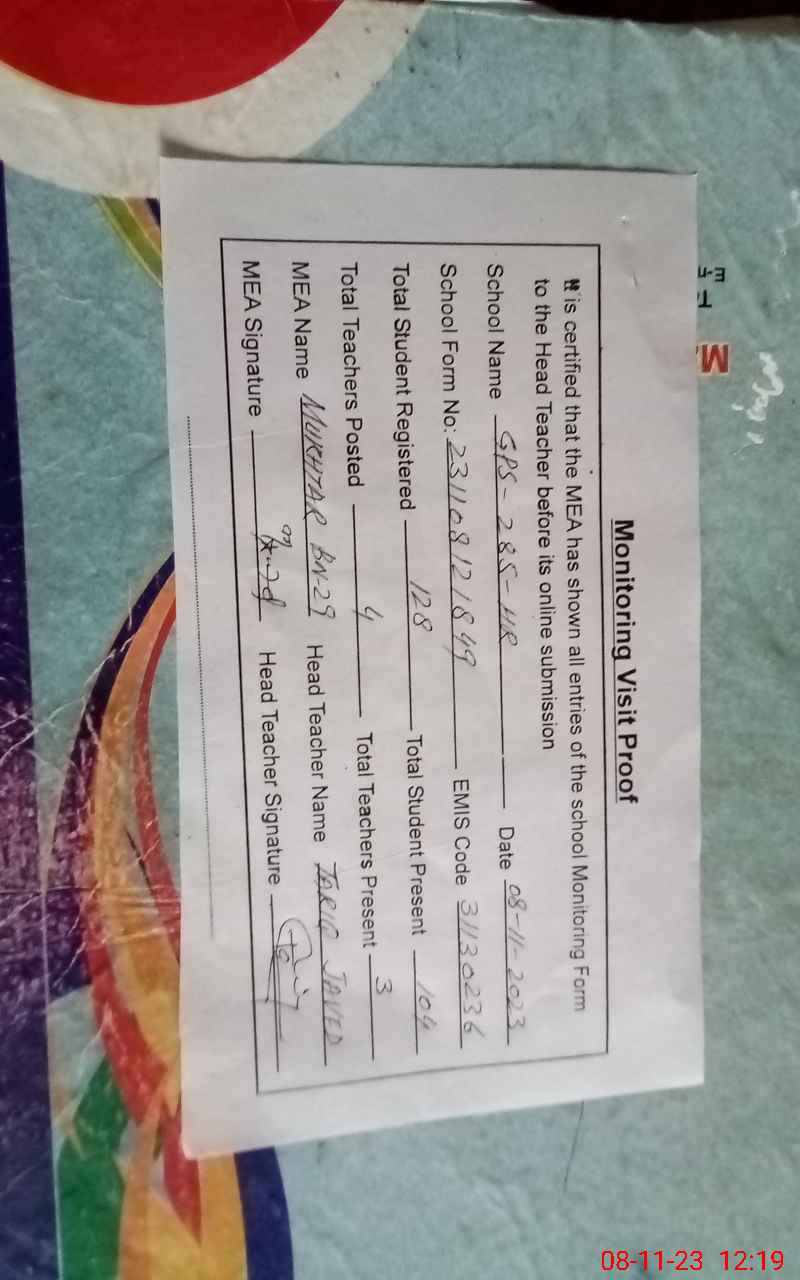 Monitoring Visit Proof
It is certified that the MEA has shown all entries of the school Monitoring Form
to the Head Teacher before its online submission
School Name GPS-285-HR Date 08-11-2023
School Form No: 231108121849 EMIS Code 31130236
Total Student Registered 128 Total Student Present 104
Total Teachers Posted 4 Total Teachers Present 3
MEA Name MUKHTAR BN-29 Head Teacher Name TARIQ JAVED
MEA Signature Head Teacher Signature
08-11-23 12:19